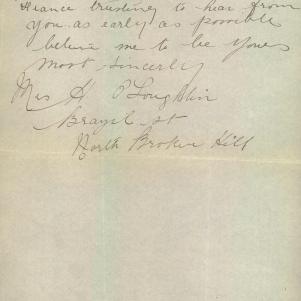 trusting to hear from
you as early as possible
believe me to be yours
most sincerely
Mrs H O'Loughlin
Brazil st
North Broken Hill